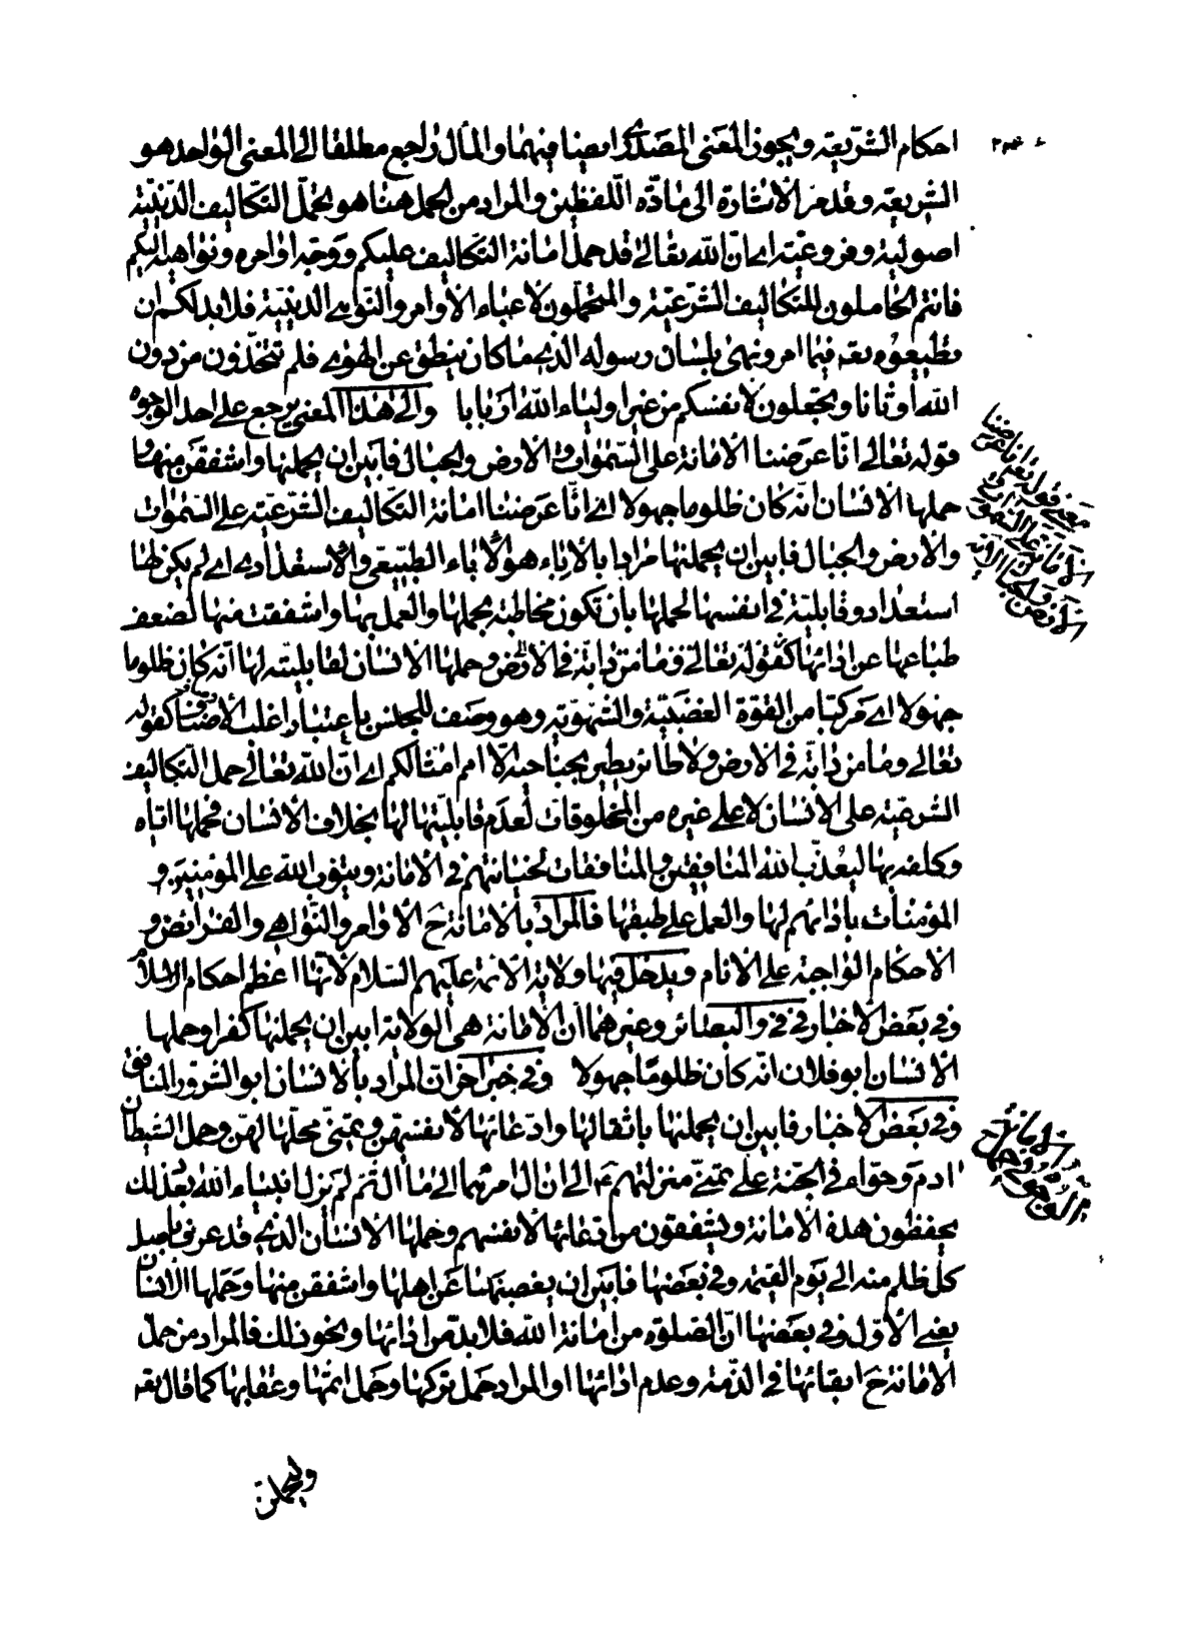 احكام الشريعة ويجوز المعنى المصدرى ايضا فيهما والمآل راجع مطلقا الى المعنى الواحد هو
الشريعة وقد مر الاشارة الى مادة اللفظين والمراد من الحمل هنا هو تحمل التكاليف الدينية
اصولية وفروعية اى ان الله تعالى قد حمل امانة التكاليف عليكم ووجه اوامره ونواهيه اليكم
فانتم الحاملون للتكاليف الشرعية والمتحملون لاعباء الاوامر والنواهى الدينية فلابد لكم ان
تطيعوه تعه فيما امر ونهى بلسان رسوله الذى ما كان ينطق عن الهوى فلم تتخذون من دون
الله اوثانا وتجعلون لانفسكم من غير اولياء الله اربابا والى هذا المعنى يرجع على احد الوجوه
قوله تعالى انا عرضنا الامانة على السموات والارض والجبال فابين ان يحملنها واشفقن منها و
حملها الانسان انه كان ظلوما جهولا اى انا عرضنا امانة التكاليف الشرعية على السموات
والارض والجبال فابين ان يحملنها مرادا بالاباء هو الاباء الطبيعى والاستعدادى اى لم يكن لها
استعداد وقابلية فى انفسها لحملها بان تكون مخاطبة بحملها والعمل بها واشفقت منها لضعف
طباعها عن ادائها كقوله تعالى وما من دابة فى الارض وحملها الانسان لقابليته لها انه كان ظلوما
جهولا اى مركبا من القوة الغضبية والشهوية وهو وصف للجنس باعتبار اغلب الاصناف كقوله
تعالى وما من دابة فى الارض ولا طائر يطير بجناحيه الا امم امثالكم اى ان الله تعالى حمل التكاليف
الشرعية على الانسان لا على غيره من المخلوقات لعدم قابليتها لها بخلاف الانسان فحملها اياه
وكلفه بها ليعذب الله المنافقين والمنافقات لخيانتهم فى الامانة ويتوب الله على المؤمنين و
المؤمنات بادائهم لها والعمل على طبقها فالمراد بالامانة ح الاوامر والنواهى والفرائض و
الاحكام الواجبة على الانام ويدخل فيها ولاية الائمة عليهم السلام لانها اعظم احكام الاسلام
وفى بعض الاخبار فى فى والبصائر وغيرهما ان الامانة هى الولاية ابين ان يحملنها كفرا وحملها
الانسان ابو فلان انه كان ظلوما جهولا وفى خبر اخر ان المراد بالانسان ابو الشرور المنافق
وفى بعض الاخبار فابين ان يحملنها باثقالها وادعائها لانفسهن وتمنى محلها لهن وحمل الشيطان
ادم وحواء فى الجنة على تمنى منزلتهم ع الى ان ال امرهما الى ما ال ثم لم يزل انبياء الله بعد ذلك
يحفظون هذه الامانة ويشفقون من ادعائها لانفسهم وحملها الانسان الذى قد عرف باصل
كل ظلم منه الى يوم القيمة وفى بعضها فابين ان يغصبنها عن اهلها واشفقن منها وحملها الانسان
يعنى الاول وفى بعضها ان الصلوة من امانة الله فلابد من ادائها ونحو ذلك فالمراد من حمل
الامانة ح ابقائها فى الذمة وعدم ادائها او المراد حمل تركها وحمل اثمها وعقابها كما قال تعه
وليحملن
معنى قوله تعه انا عرضنا
الامانة على السموات و
الارض والجبال الاية